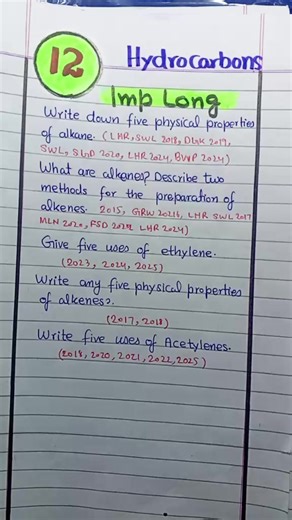 12 Hydrocarbons
Imp Long
Write down five physical properties
of alkane. (LHR, SWL 2018, DGK 2019,
SWL, SGD 2020, LHR 2024, BWP 2024)
What are alkenes? Describe two
methods for the preparation of
alkenes. 2015, GRW 2016, LHR SWL 2017
MLN 2020, FSD 2022, LHR 2024)
Give five uses of ethylene.
(2023, 2024, 2025)
Write any five physical properties
of alkenes?.
(2017, 2018)
Write five uses of Acetylenes.
(2018, 2020, 2021, 2022, 2025)